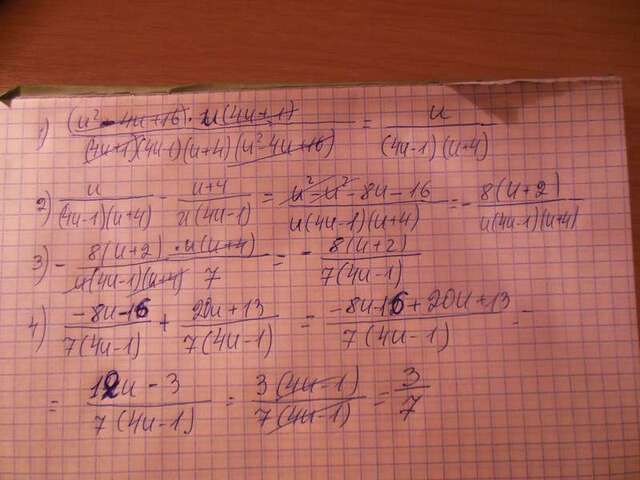 1) (u² - 4u + 16) · u(4u + 1) / (4u+1)(4u-1)(u+4)(u² 4u+16) = u / (4u-1)(u+4)
2) u / (4u-1)(u+4) - u+4 / u(4u-1) = u² - u² - 8u - 16 / u(4u-1)(u+4) = - 8(u+2) / u(4u-1)(u+4)
3) - 8(u+2) · u(u+4) / u(4u-1)(u+4) 7 = - 8(u+2) / 7(4u-1)
4) -8u-16 / 7(4u-1) + 20u+13 / 7(4u-1) = -8u-16+20u+13 / 7(4u-1) =
= 12u - 3 / 7(4u-1) = 3(4u-1) / 7(4u-1) = 3 / 7